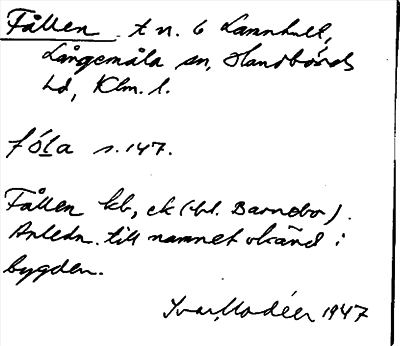 Fållen t n. 6 Lannhult,
Långemåla sn, Handbörds
hd, Klm. l.
fóla s. 147.
Fållen kb, ek (bl. Barnebo).
Anledn. till namnet okänd i
bygden.
Ivar Modéer 1947